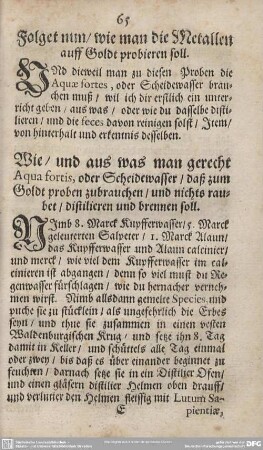 65
Folget nun/ wie man die Metallen
auff Goldt probieren soll.
UNd dieweil man zu diesen Proben die
Aquæ fortes, oder Scheidewasser brau-
chen muß/ wil ich dir erstlich ein unter-
richt geben/ aus was/ oder wie du dasselbe distil-
lieren/ und die feces davon reinigen solst/ Item/
von hinterhalt und erkentnis desselben.
Wie/ und aus was man gerecht
Aqua fortis, oder Scheidewasser/ daß zum
Goldt proben zubrauchen/ und nichts rau-
bet/ distilieren und brennen soll.
NImb 8. Marck Kupfferwasser/ 5. Marck
geleuterten Salpeter/ 1. Marck Alaun/
das Kupfferwasser und Alaun calcinier/
und merck/ wie viel dem Kupfferwasser im cal-
cinieren ist abgangen/ denn so viel must du Re-
genwasser fürschlagen/ wie du hernacher verneh-
men wirst. Nimb allsdann gemelte Species, und
puche sie zu stücklein/ als ungefehrlich die Erbes
seyn/ und thue sie zusammen in einen vesten
Waldenburgischen Krug/ und setze ihn 8. Tag
damit in Keller/ und schüttels alle Tag einmal
oder zwey/ bis daß es über einander beginnet zu
feuchten/ darnach setze sie in ein Distilier Ofen/
und einen gläsern distilier Helmen oben drauff/
und verlutier den Helmen fleissig mit Lutum Sa-
E pientiæ,